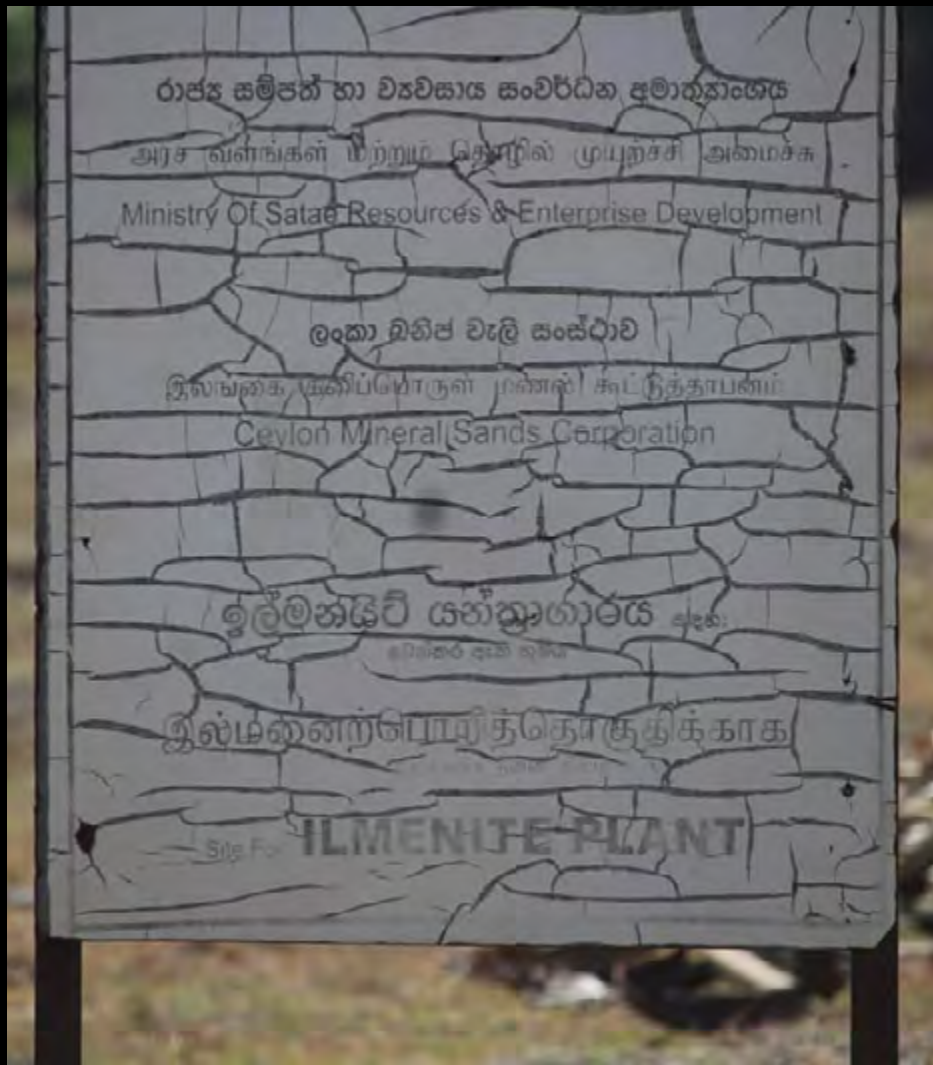 රාජ්‍ය සම්පත් හා ව්‍යවසාය සංවර්ධන අමාත්‍යාංශය
அரச வளங்கள் மற்றும் தொழில் முயற்ச்சி அமைச்சு
Ministry Of Satae Resources & Enterprise Development
ලංකා ඛනිජ වැලි සංස්ථාව
இலங்கை கனிப்பொருள் மணல் கூட்டுத்தாபனம்
Ceylon Mineral Sands Corporation
ඉල්මනයිට් යන්ත්‍රාගාරය සඳහා
වෙන්කර ඇති භූමිය
இல்மனைற்பொறித்தொகுதிக்காக
Site For ILMENITE PLANT